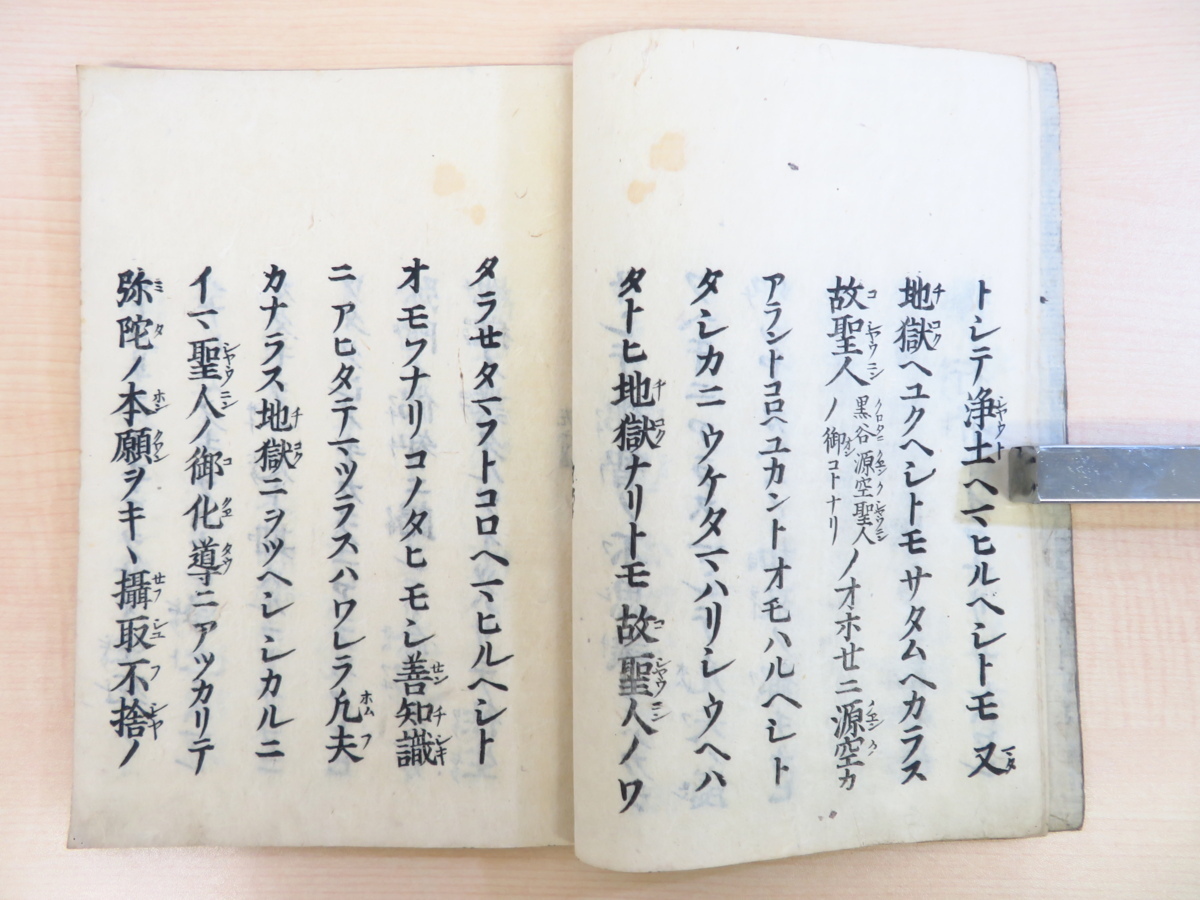 トシテ浄土ヘマヒルヘシトモ又
地獄ヘユクヘシトモサタムヘカラス
故聖人黒谷源空聖人ノ御コトナリノオホせニ源空カ
アラントコロヘユカントオモハルヘシト
タシカニウケタマハリシウヘハ
タトヒ地獄ナリトモ故聖人ノワ
タラせタマフトコロヘマヒルヘシト
オモフナリコノタヒモシ善知識
ニアヒタテマツラスハワレラ凡夫
カナラス地獄ニヲツヘシシカルニ
イマ聖人ノ御化導ニアツカリテ
弥陀ノ本願ヲキヽ攝取不捨ノ